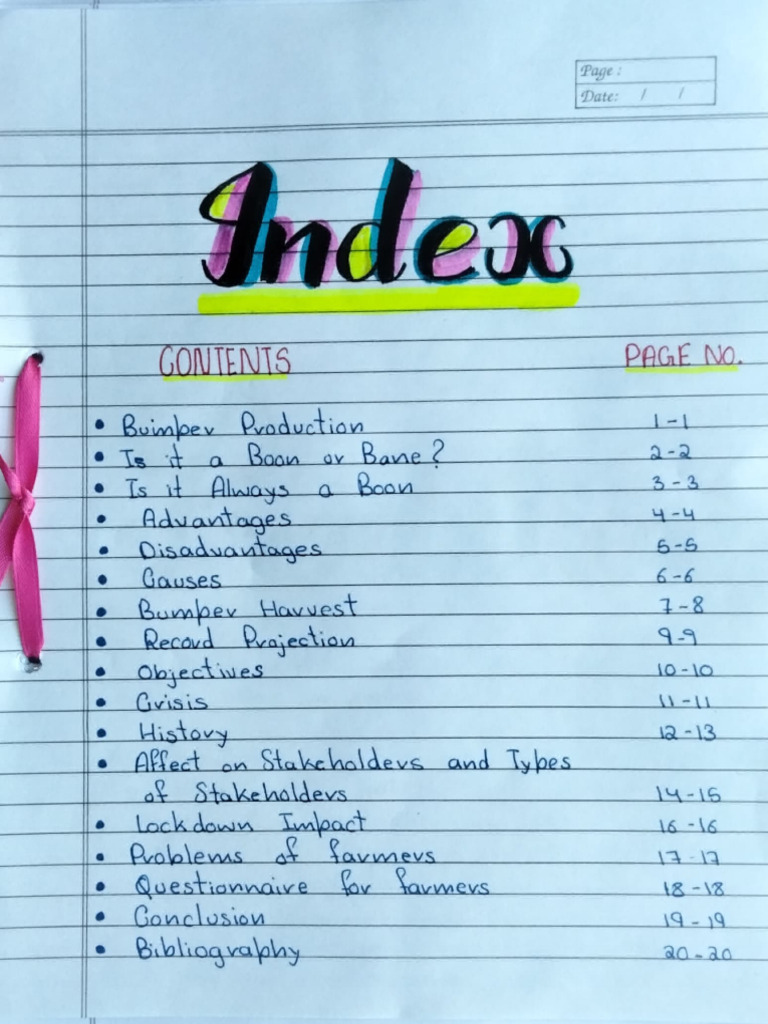 Page :
Date: / /
Index
CONTENTS PAGE NO.
• Bumper Production 1-1
• Is it a Boon or Bane? 2-2
• Is it Always a Boon 3-3
• Advantages 4-4
• Disadvantages 5-5
• Causes 6-6
• Bumper Harvest 7-8
• Record Projection 9-9
• Objectives 10-10
• Crisis 11-11
• History 12-13
• Affect on Stakeholders and Types
of Stakeholders 14-15
• Lockdown Impact 16-16
• Problems of farmers 17-17
• Questionnaire for farmers 18-18
• Conclusion 19-19
• Bibliography 20-20